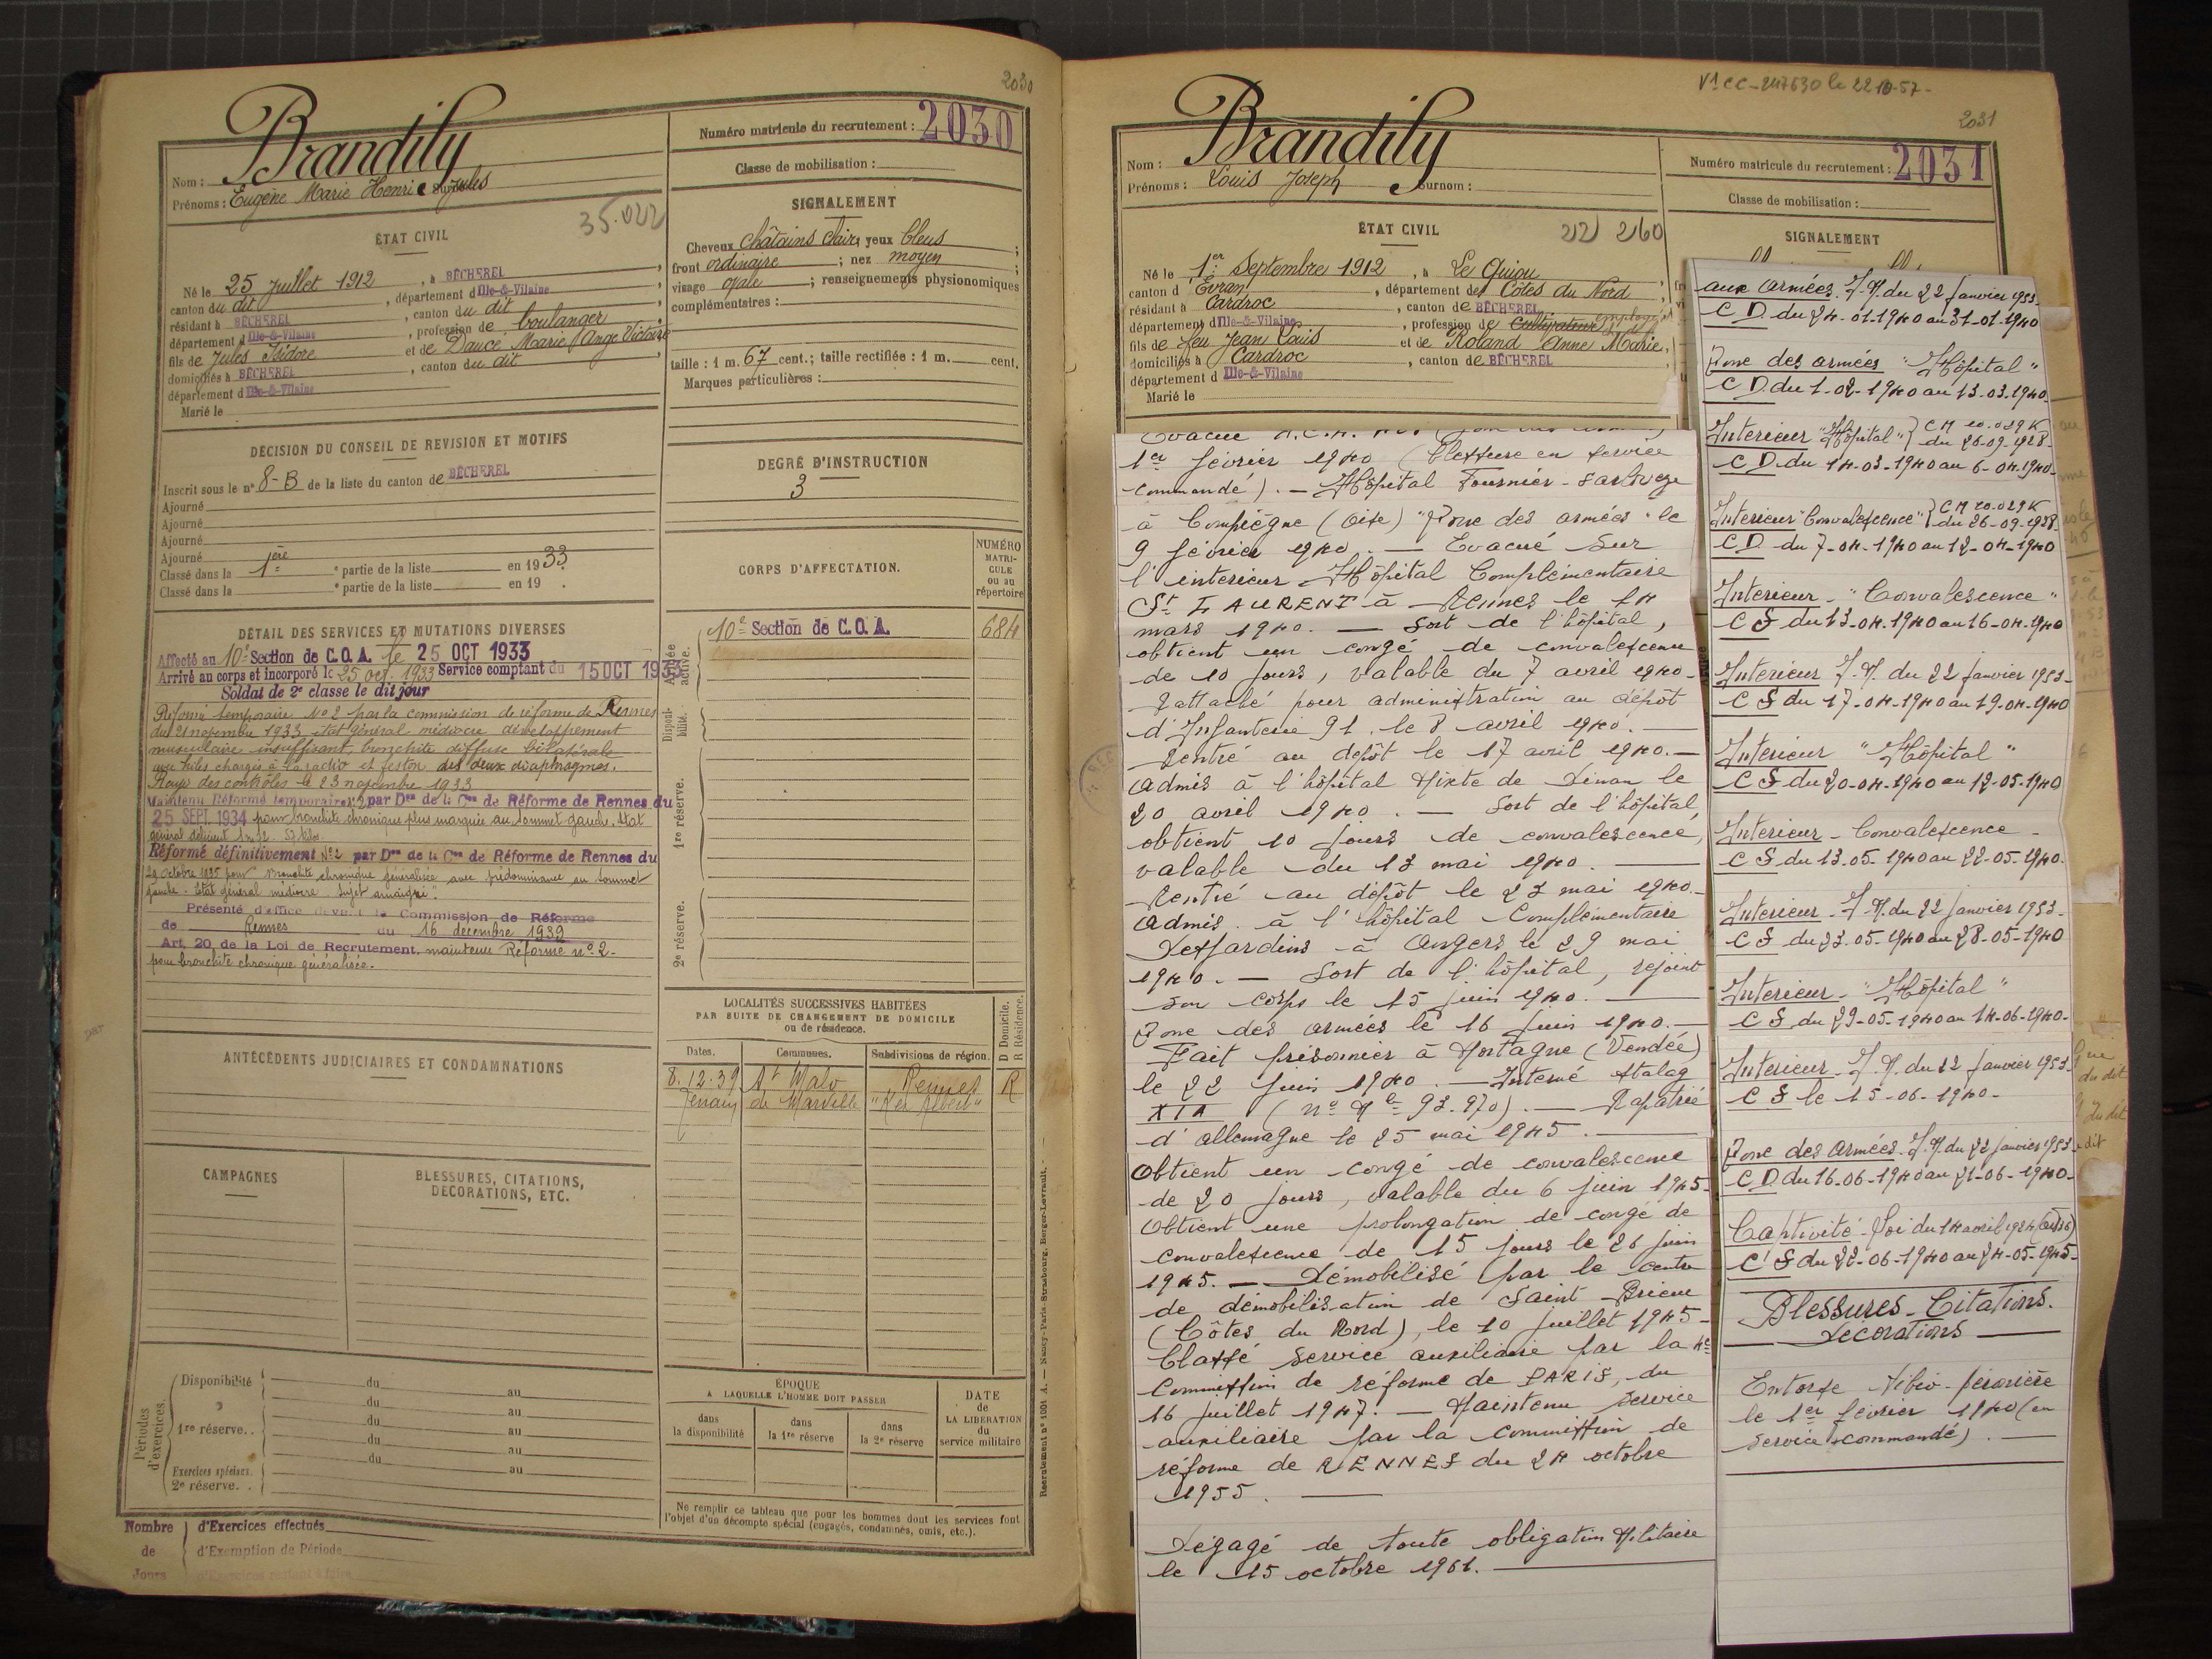 2030
Brandily
Nom :
Prénoms : Eugène Marie Henri Jules
35.022
Numéro matricule du recrutement : 2030
Classe de mobilisation :
ÉTAT CIVIL
Né le 25 Juillet 1912, à BÉCHEREL
canton du dit, département d Ille-&-Vilaine
résidant à BÉCHEREL, canton du dit
département d Ille-&-Vilaine, profession de boulanger
fils de Jules Isidore et de Dauce Marie Ange Victoire
domiciliés à BÉCHEREL, canton du dit
département d Ille-&-Vilaine
Marié le
SIGNALEMENT
Cheveux châtains clairs yeux bleus ;
front ordinaire ; nez moyen ;
visage ovale ; renseignements physionomiques
complémentaires :
taille : 1 m. 67 cent.; taille rectifiée : 1 m. cent.
Marques particulières :
DÉCISION DU CONSEIL DE REVISION ET MOTIFS
Inscrit sous le n° 8-B de la liste du canton de BÉCHEREL
Ajourné
Ajourné
Ajourné
Ajourné
Classé dans la 1ère partie de la liste en 1933
Classé dans la e partie de la liste en 19 .
DEGRÉ D'INSTRUCTION
3
DÉTAIL DES SERVICES ET MUTATIONS DIVERSES
Affecté au 10e Section de C.O.A. le 25 OCT 1933
Arrivé au corps et incorporé le 25 oct. 1933 Service comptant du 15 OCT 1933
Soldat de 2e classe le dit jour
Réformé temporaire No 2 par la commission de réforme de Rennes
du 21 novembre 1933 état général médiocre développement
musculaire insuffisant, bronchite diffuse bilatérale
avec hiles chargés à la radio et feston des deux diaphragmes.
Rayé des contrôles le 23 novembre 1933
Maintenu Réformé temporaire n°2 par Don de la Con de Réforme de Rennes du
25 SEPT. 1934 pour bronchite chronique plus marquée au sommet gauche. état
général déficient
Réformé définitivement N°2 par Don de la Con de Réforme de Rennes du
29 octobre 1935 pour bronchite chronique généralisée avec prédominance au sommet
gauche. état général médiocre. Sujet amaigri".
Présenté d'office devant la Commission de Réforme
de Rennes du 16 décembre 1939
Art. 20 de la Loi de Recrutement, maintenu Réformé n° 2-
pour bronchite chronique généralisée.
CORPS D'AFFECTATION.
NUMÉRO
MATRI-
CULE
ou au
répertoire
Armée active.
10e Section de C.O.A. 684
Disponi-
bilité.
1re réserve.
2e réserve.
LOCALITÉS SUCCESSIVES HABITÉES
PAR SUITE DE CHANGEMENT DE DOMICILE
ou de résidence.
D Domicile.
R Résidence.
Dates. Communes. Subdivisions de région.
8.12.39 St Malo Rennes R
ANTÉCÉDENTS JUDICIAIRES ET CONDAMNATIONS
CAMPAGNES
BLESSURES, CITATIONS,
DÉCORATIONS, ETC.
Périodes
d'exercices.
Disponibilité du au
du au
1re réserve. . du au
du au
Exercices spéciaux. du au
2e réserve. .
Nombre de Jours
d'Exercices effectués
d'Exemption de Période
d'Exercices restant à faire
ÉPOQUE
A LAQUELLE L'HOMME DOIT PASSER
dans
la disponibilité
dans
la 1re réserve
dans
la 2e réserve
DATE
de
LA LIBÉRATION
du
service militaire
Ne remplir ce tableau que pour les hommes dont les services font
l'objet d'un décompte spécial (engagés, condamnés, omis, etc.).
Recrutement n° 1001 A. — Nancy-Paris-Strasbourg, Berger-Levrault. -
V1 CC-247630 le 22 10-57-
2031
Brandily
Nom :
Prénoms : Louis Joseph Surnom :
22 260
Numéro matricule du recrutement : 2031
Classe de mobilisation :
SIGNALEMENT
ÉTAT CIVIL
Né le 1er Septembre 1912, à Le Quiou
canton d'Évran, département des Côtes du Nord
résidant à Cardroc, canton de BÉCHEREL
département d Ille-&-Vilaine, profession de Cultivateur employé
fils de feu Jean Louis et de Roland Anne Marie,
domiciliés à Cardroc, canton de BÉCHEREL
département d Ille-&-Vilaine
Marié le
1er février 1940 (blessure en service
commandé). — Hôpital Fournier-Sarlovèze
à Compiègne (Oise) "Zone des armées" le
9 février 1940. — Evacué sur
l'intérieur Hôpital Complémentaire
St LAURENT à Rennes le 14
mars 1940. — Sort de l'hôpital,
obtient un congé de convalescence
de 10 jours, valable du 7 avril 1940-
Rattaché pour administration au dépôt
d'Infanterie 91 le 8 avril 1940. —
Rentré au dépôt le 17 avril 1940. —
Admis à l'hôpital Mixte de Dinan le
20 avril 1940. — Sort de l'hôpital,
obtient 10 jours de convalescence,
valable du 13 mai 1940. —
Rentré au dépôt le 23 mai 1940. —
Admis à l'hôpital Complémentaire
Desjardins à Angers le 29 mai
1940. — Sort de l'hôpital, rejoint
son corps le 15 juin 1940. —
Zone des armées le 16 juin 1940. —
Fait prisonnier à Mortagne (Vendée)
le 22 juin 1940. — Interné Stalag
XIA (No Mle 93.970). — Rapatrié
d'allemagne le 25 mai 1945. —
Obtient un congé de convalescence
de 20 jours, valable du 6 juin 1945-
Obtient une prolongation de congé de
convalescence de 15 jours le 26 juin
1945. — Démobilisé par le centre
de démobilisation de Saint-Brieuc
(Côtes du Nord), le 10 juillet 1945-
Classé service auxiliaire par la 4e
Commission de réforme de PARIS, du
16 juillet 1947. — Maintenu service
auxiliaire par la commission de
réforme de RENNES du 24 octobre
1955. —
Dégagé de toute obligation Militaire
le 15 octobre 1961. —
aux armées. I.M. du 22 janvier 1953.
C D du 24-01-1940 au 31-01-1940
Zone des armées "Hôpital"
C D du 1-02-1940 au 13-03-1940
Intérieur "Hôpital" } CM 20.029K
du 26-09-1928-
C D du 14-03-1940 au 6-04-1940-
Intérieur "Convalescence" } CM 20.029K
du 26-09-1928
C D du 7-04-1940 au 12-04-1940
Intérieur - "Convalescence"
C S du 13-04-1940 au 16-04-1940
Intérieur I.M. du 22 janvier 1953-
C S du 17-04-1940 au 19-04-1940
Intérieur "Hôpital"
C S du 20-04-1940 au 12-05-1940
Intérieur - Convalescence -
C S du 13-05-1940 au 22-05-1940.
Intérieur - I.M. du 22 janvier 1953-
C S du 23-05-1940 au 28-05-1940
Intérieur - "Hôpital"
C S du 29-05-1940 au 14-06-1940-
Intérieur - I.M. du 22 janvier 1953-
C S le 15-06-1940-
Zone des armées. I.M. du 22 janvier 1953-
C D du 16-06-1940 au 21-06-1940-
Captivité - Loi du 14 avril 1924 (art 36)
C S du 22-06-1940 au 24-05-1945-
Blessures - Citations.
Décorations
Entorse tibio-péronière
le 1er février 1940 (en
service commandé). —